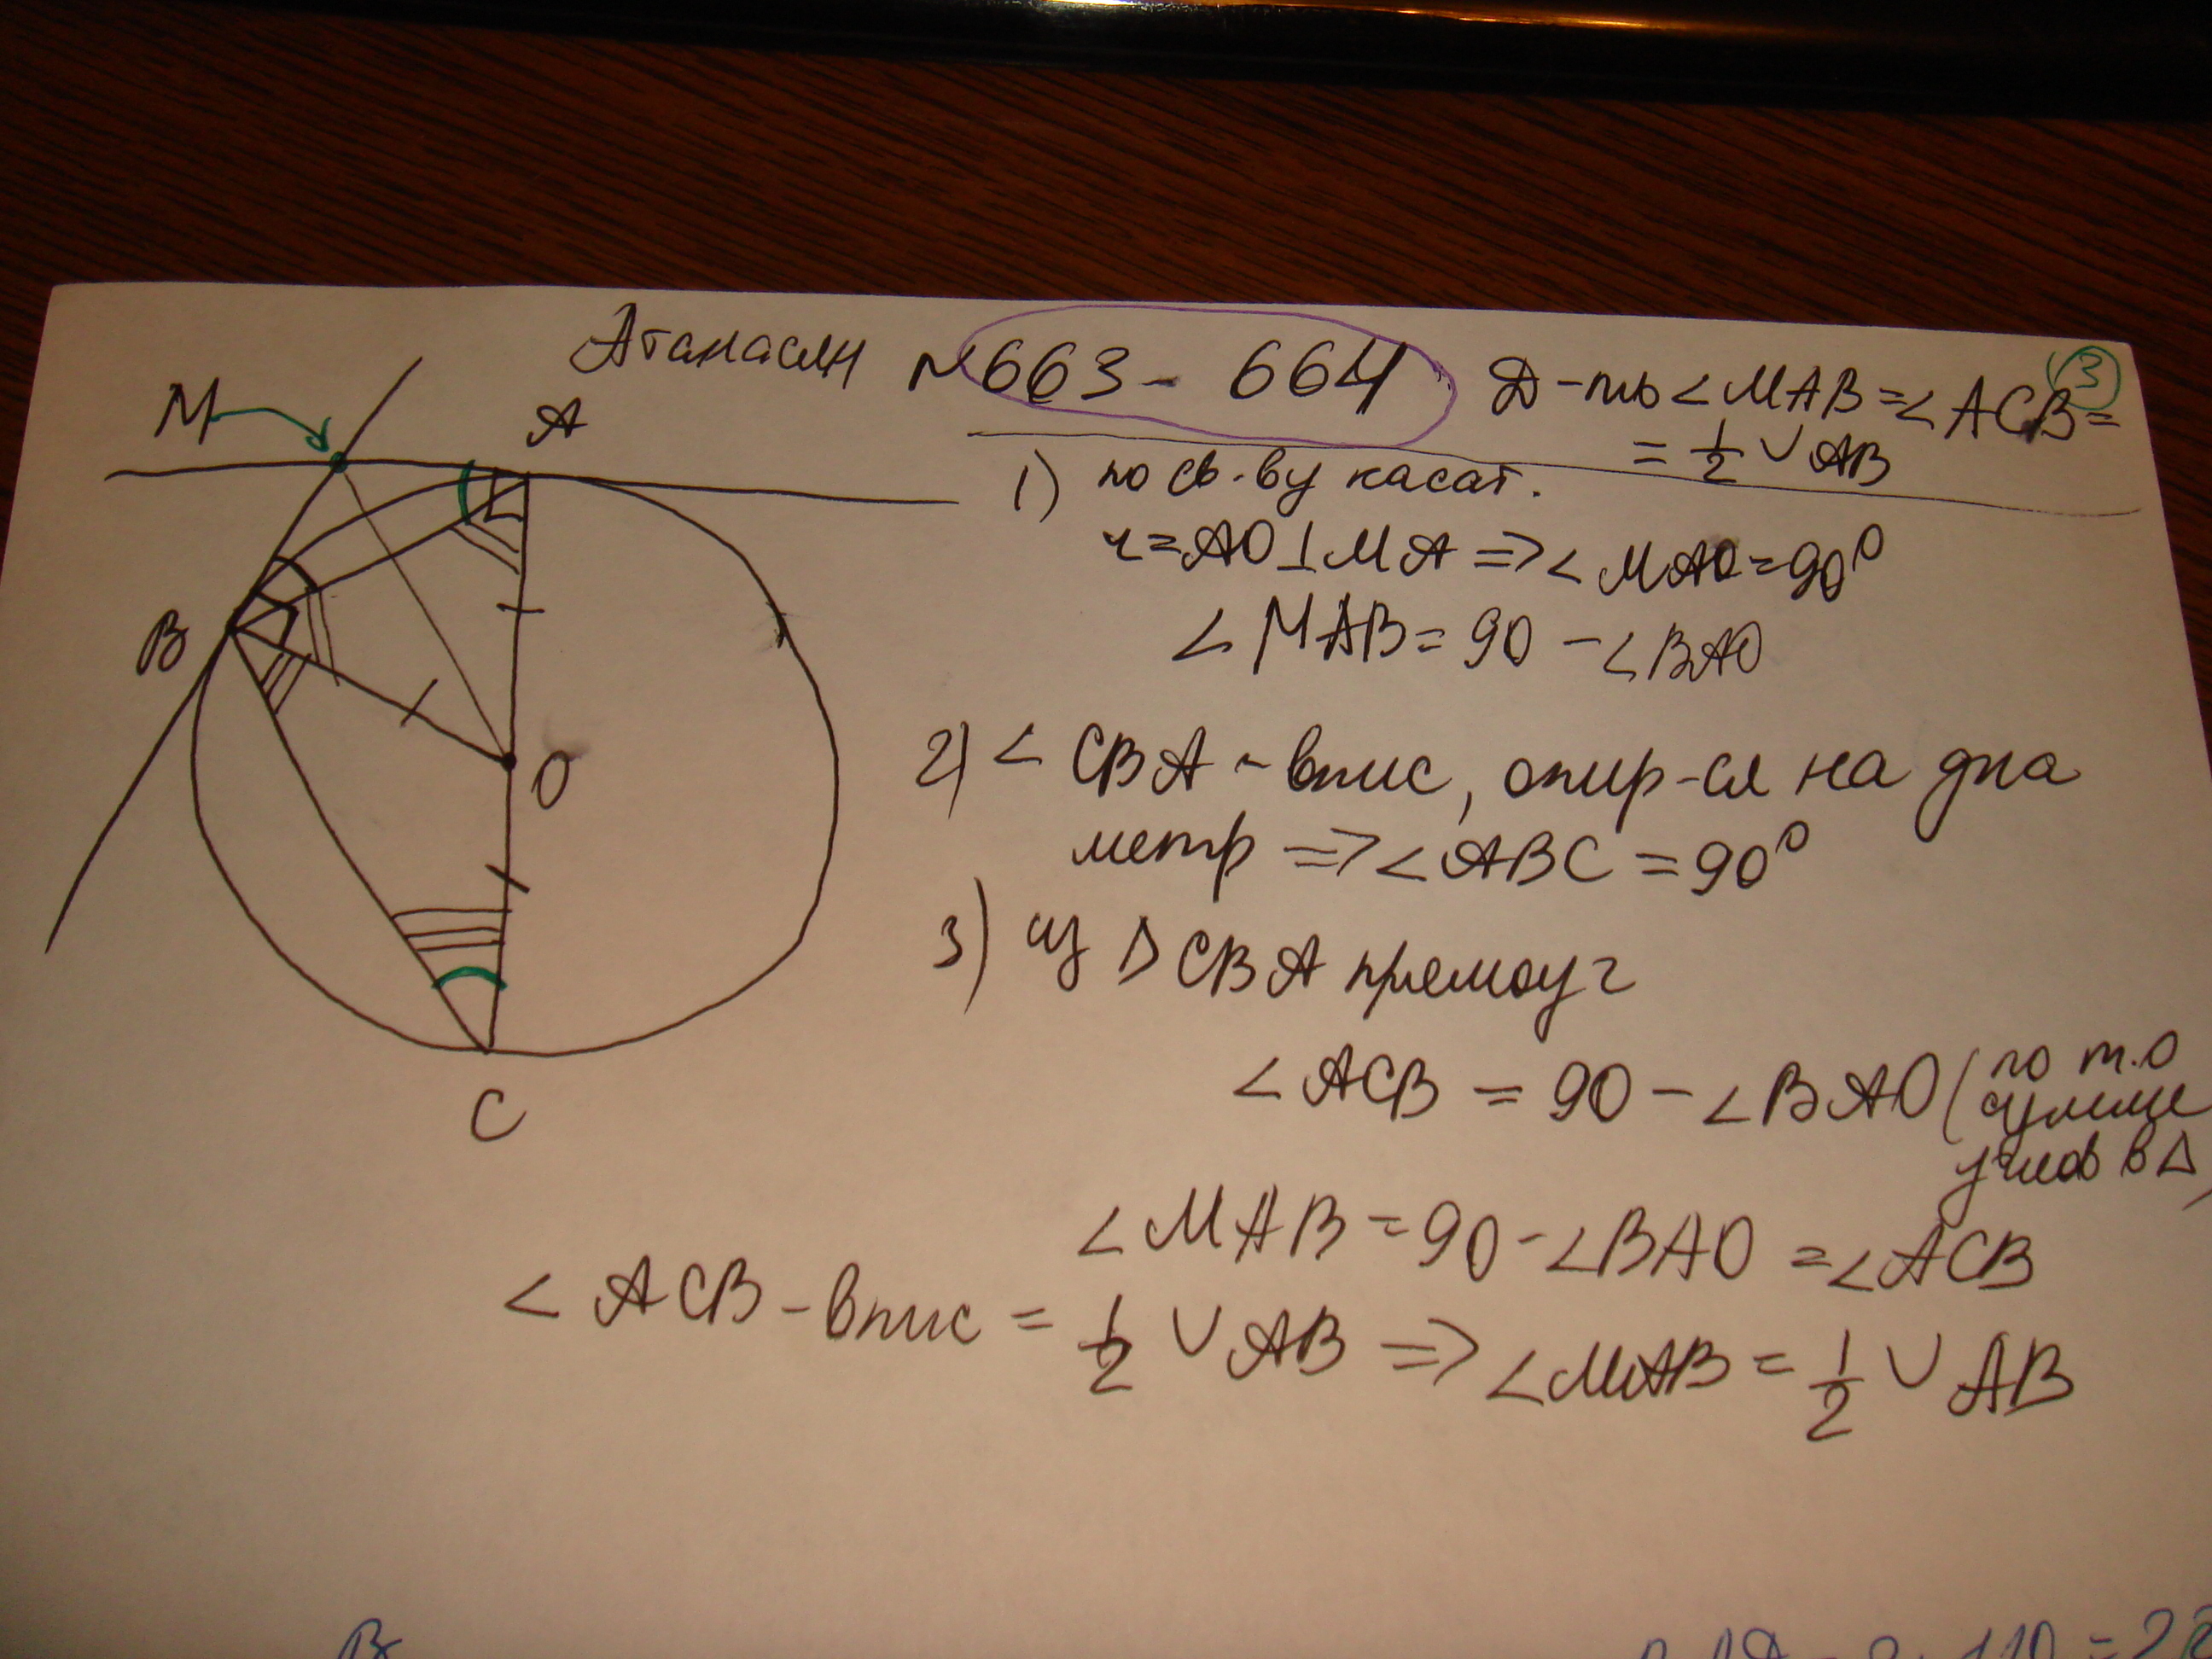 Атанасян №663 - 664 Д-ть ∠MAB = ∠ACB =
= 1/2 ∪ AB
3
M
A
B
O
C
1) по св-ву касат.
r = AO ⊥ MA => ∠MAO = 90°
∠MAB = 90 - ∠BAO
2) ∠CBA - впис, опир-ся на диа
метр => ∠ABC = 90°
3) из △CBA прямоуг
∠ACB = 90 - ∠BAO (по т.о
сумме
углов в △)
∠MAB = 90 - ∠BAO = ∠ACB
∠ACB - впис = 1/2 ∪ AB => ∠MAB = 1/2 ∪ AB
B